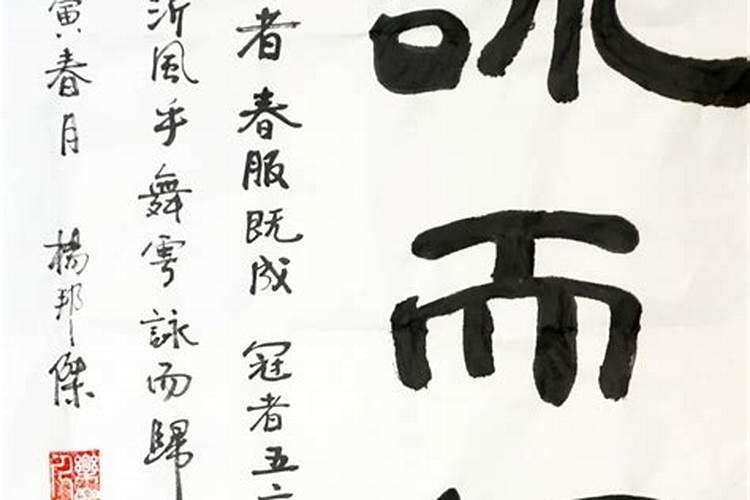 詠而
者春服既成 冠者五
沂風乎舞雩詠而歸
寅春月 楊邦傑